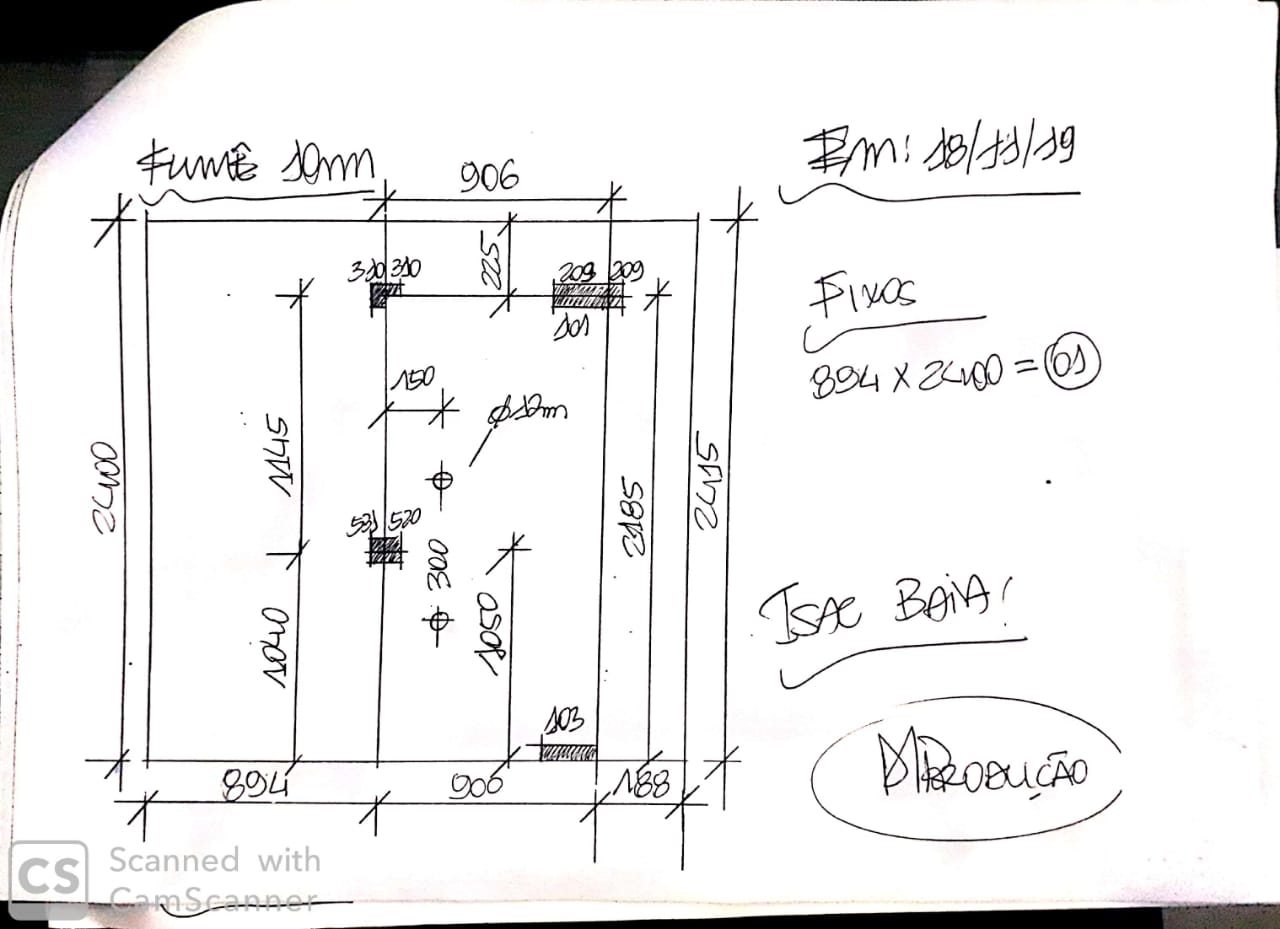 Fumê 10mm
Em: 18/11/19
906
225
310 310
209 209
101
Fixos
894 x 2400 = 01
150
ϕ12m
1145
2400
2185
2415
531 520
300
1040
1050
Isac Baia!
103
894
906
188
Produção
CS Scanned with
CamScanner